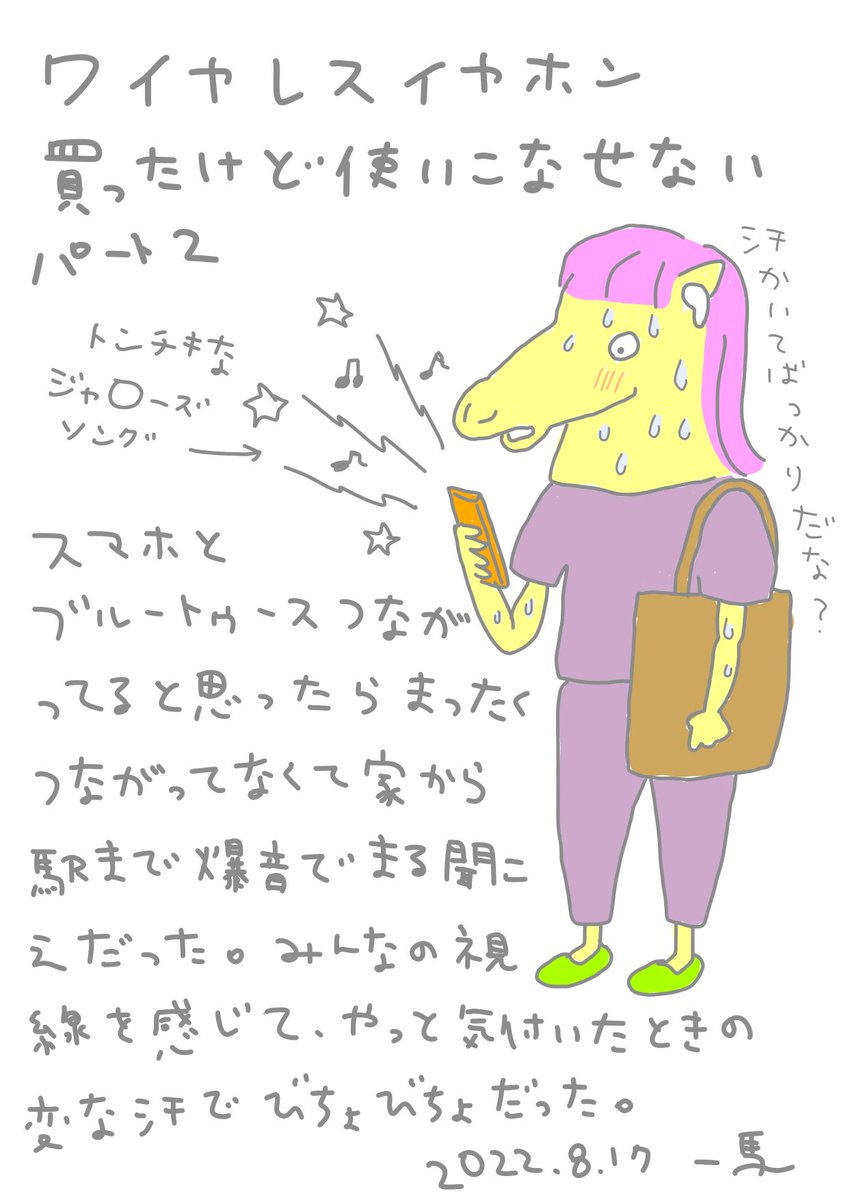 ワイヤレスイヤホン
買ったけど使いこなせない
パート2
トンチキな
ジャ〇ーズ
ソング
汗かいてばっかりだな?
スマホと
ブルートゥースつなが
ってると思ったらまったく
つながってなくて家から
駅まで爆音でまる聞こ
えだった。みんなの視
線を感じて、やっと気付いたときの
変な汗でびちょびちょだった。
2022.8.17 一馬